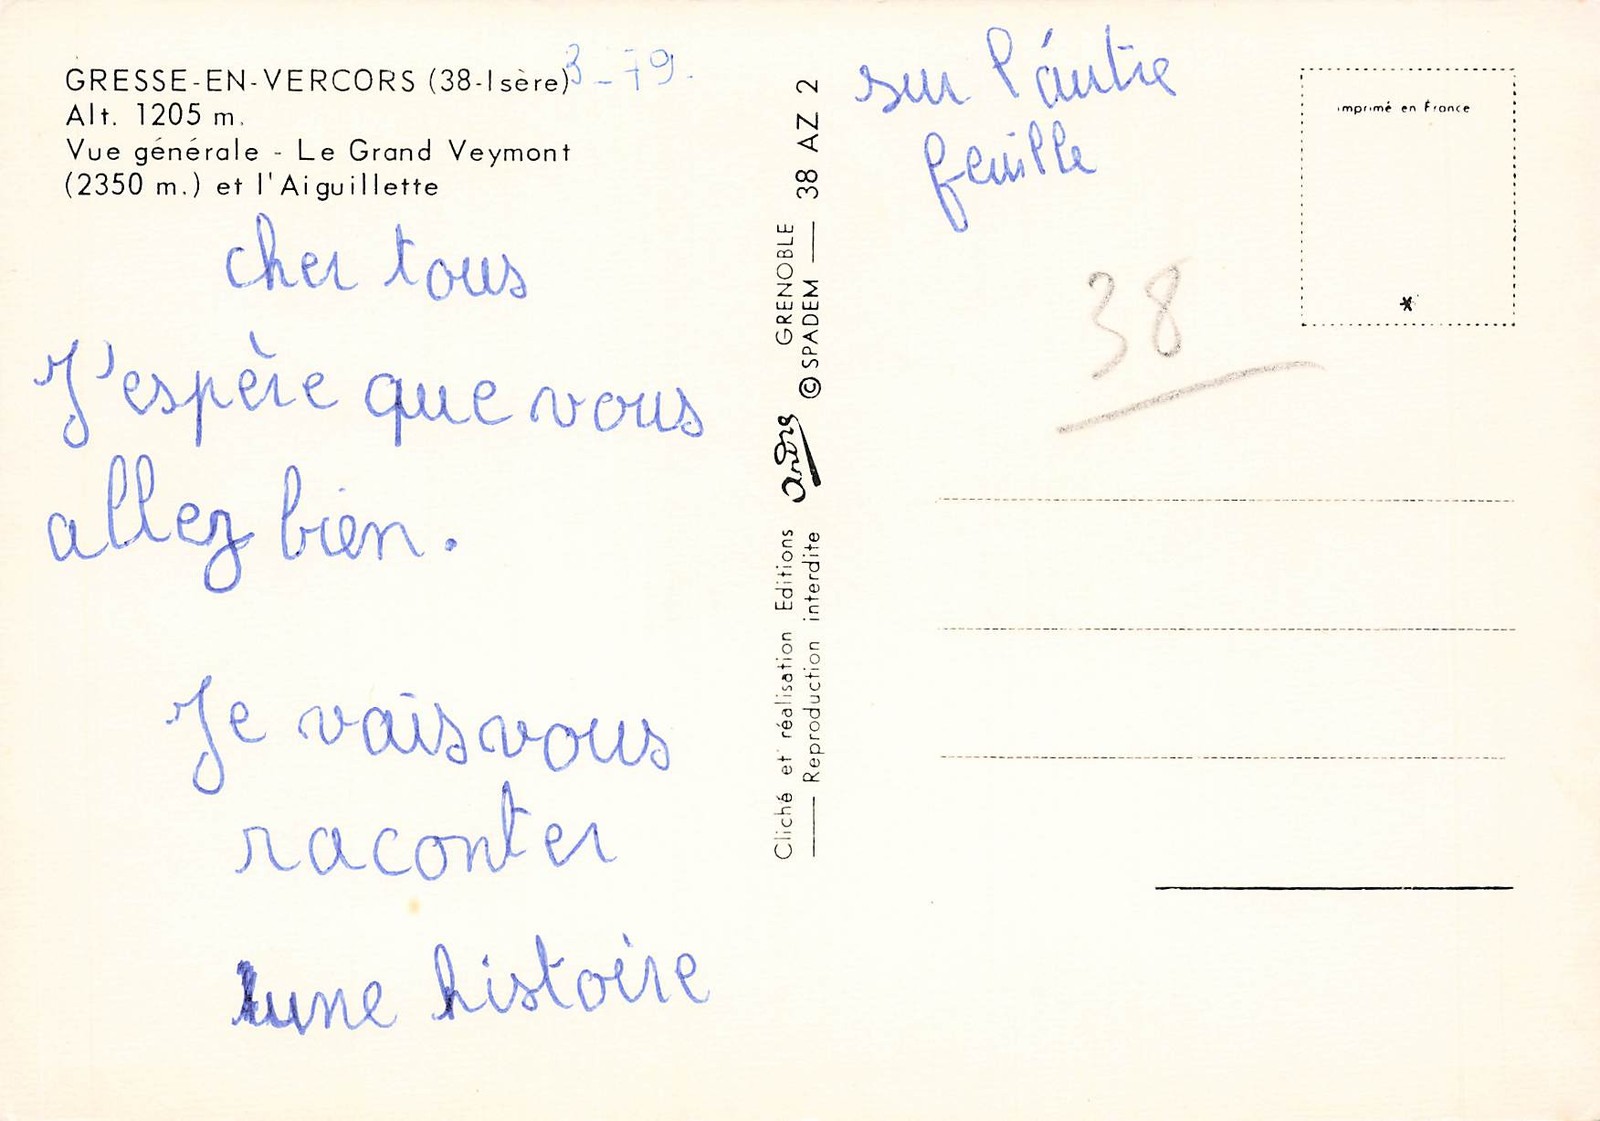 GRESSE-EN-VERCORS (38-Isère)
3-79.
Alt. 1205 m.
Vue générale - Le Grand Veymont
(2350 m.) et l'Aiguillette
cher tous
J'espère que vous
allez bien.
Je vais vous
raconter
une histoire
Cliché et réalisation Editions andré GRENOBLE
Reproduction interdite © SPADEM 38 AZ 2
sur l'autre
feuille
imprimé en France
*
38